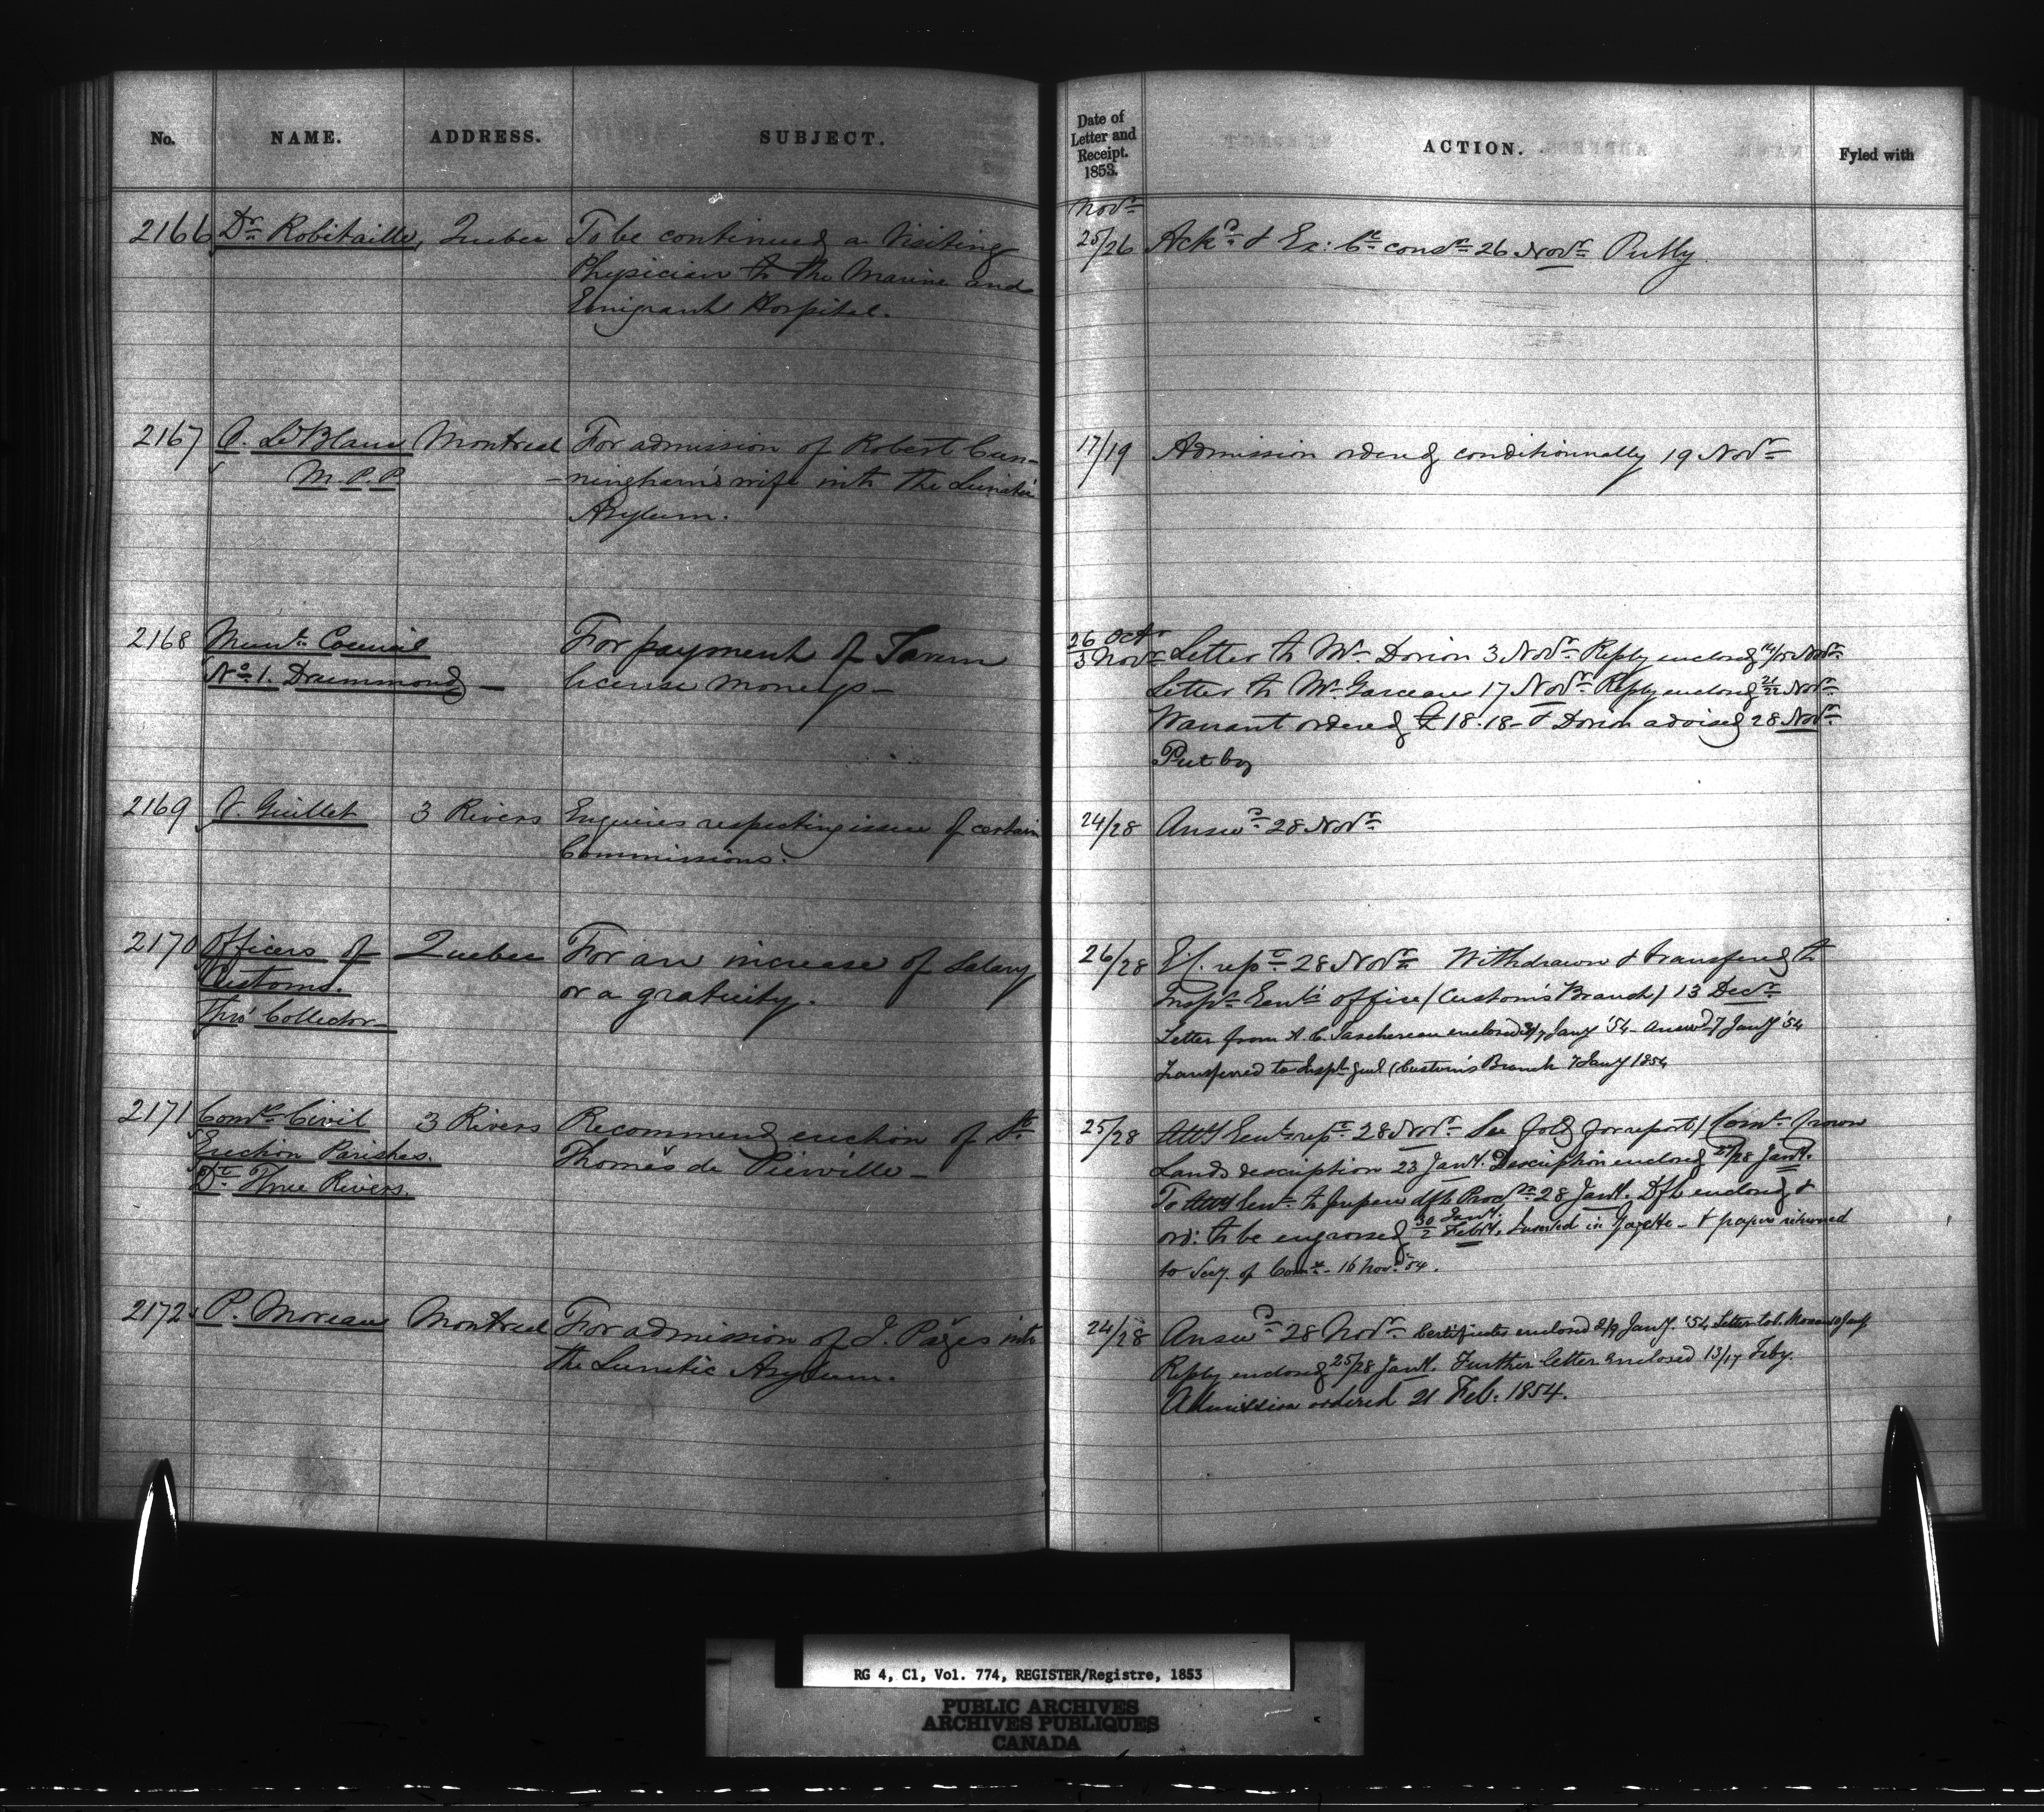 No. NAME. ADDRESS. SUBJECT.
2166 Dr Robitaille, Quebec To be continued a Visiting
Physician to the Marine and
Emigrant Hospital.
2167 LeBlanc Montreal For admission of Robert Cun-
M.P.P. -ningham's wife into the Lunatic
Asylum.
2168 Munl Council For payment of Tavern
No 1. Drummond — license moneys —
2169 Guillet 3 Rivers Enquiries respecting issue of certain
Commissions.
2170 Officers of Quebec For an increase of Salary
Customs. or a gratuity.
Thro' Collector —
2171 Comrs Civil 3 Rivers Recommend erection of St
Erection Parishes. Thomas de Pierville —
Dt Three Rivers.
2172 P. Moreau Montreal For admission of J. Pagés into
the Lunatic Asylum.
Date of
Letter and
Receipt.
1853.
ACTION. Fyled with
Novr
25/26 Ackd & Ex: Ct consn 26 Novr Put by
17/19 Admission ordered conditionnally 19 Novr
26 Octr
3 Novr Letter to Mr Dorion 3 Novr Reply enclosed Novr
Letter to Mr Garceau 17 Novr Reply enclosed 21/22 Novr
Warrant ordered £18.18 - & Dorion advised 28 Novr
Put by
24/28 Answd 28 Novr
26/28 repe 28 Novr Withdrawn & transfered to
Inspr Genl's office (Custom's Branch) 13 Decr
Letter from A. C. Taschereau enclosed Jany '54 - Answd 7 Jany '54
Transferred to Inspr Genl (Custom's Branch 7 Jany 1854
25/28 Atty Genl repe 28 Novr See fold for report / Comr Crown
Lands description 23 Jany. Description enclosed 27/28 Jany.
To Atty Genl to prepare dft Procln 28 Jany. Dft enclosed &
ord: to be engrossed 30 Jany./2 Feby. Inserted in Gazette - & papers returned
to Secy. of Comrs - 16 Novr '54.
24/28 Answd 28 Novr Certificates enclosed Jany. '54, Letter to P. Moreau Jany
Reply enclosed 25/28 Jany. Further letter enclosed 13/17 Feby.
Admission ordered 21 Feb: 1854.
RG 4, C1, Vol. 774, REGISTER/Registre, 1853
PUBLIC ARCHIVES
ARCHIVES PUBLIQUES
CANADA